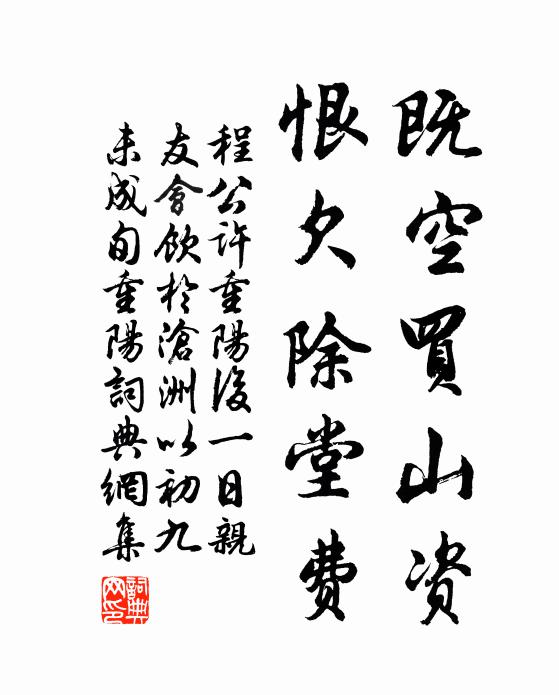 既空買山资
恨欠除堂费
程公許重陽後一日親
友會飲於滄洲以初九
未成旬重陽詞典網集
詞典網印